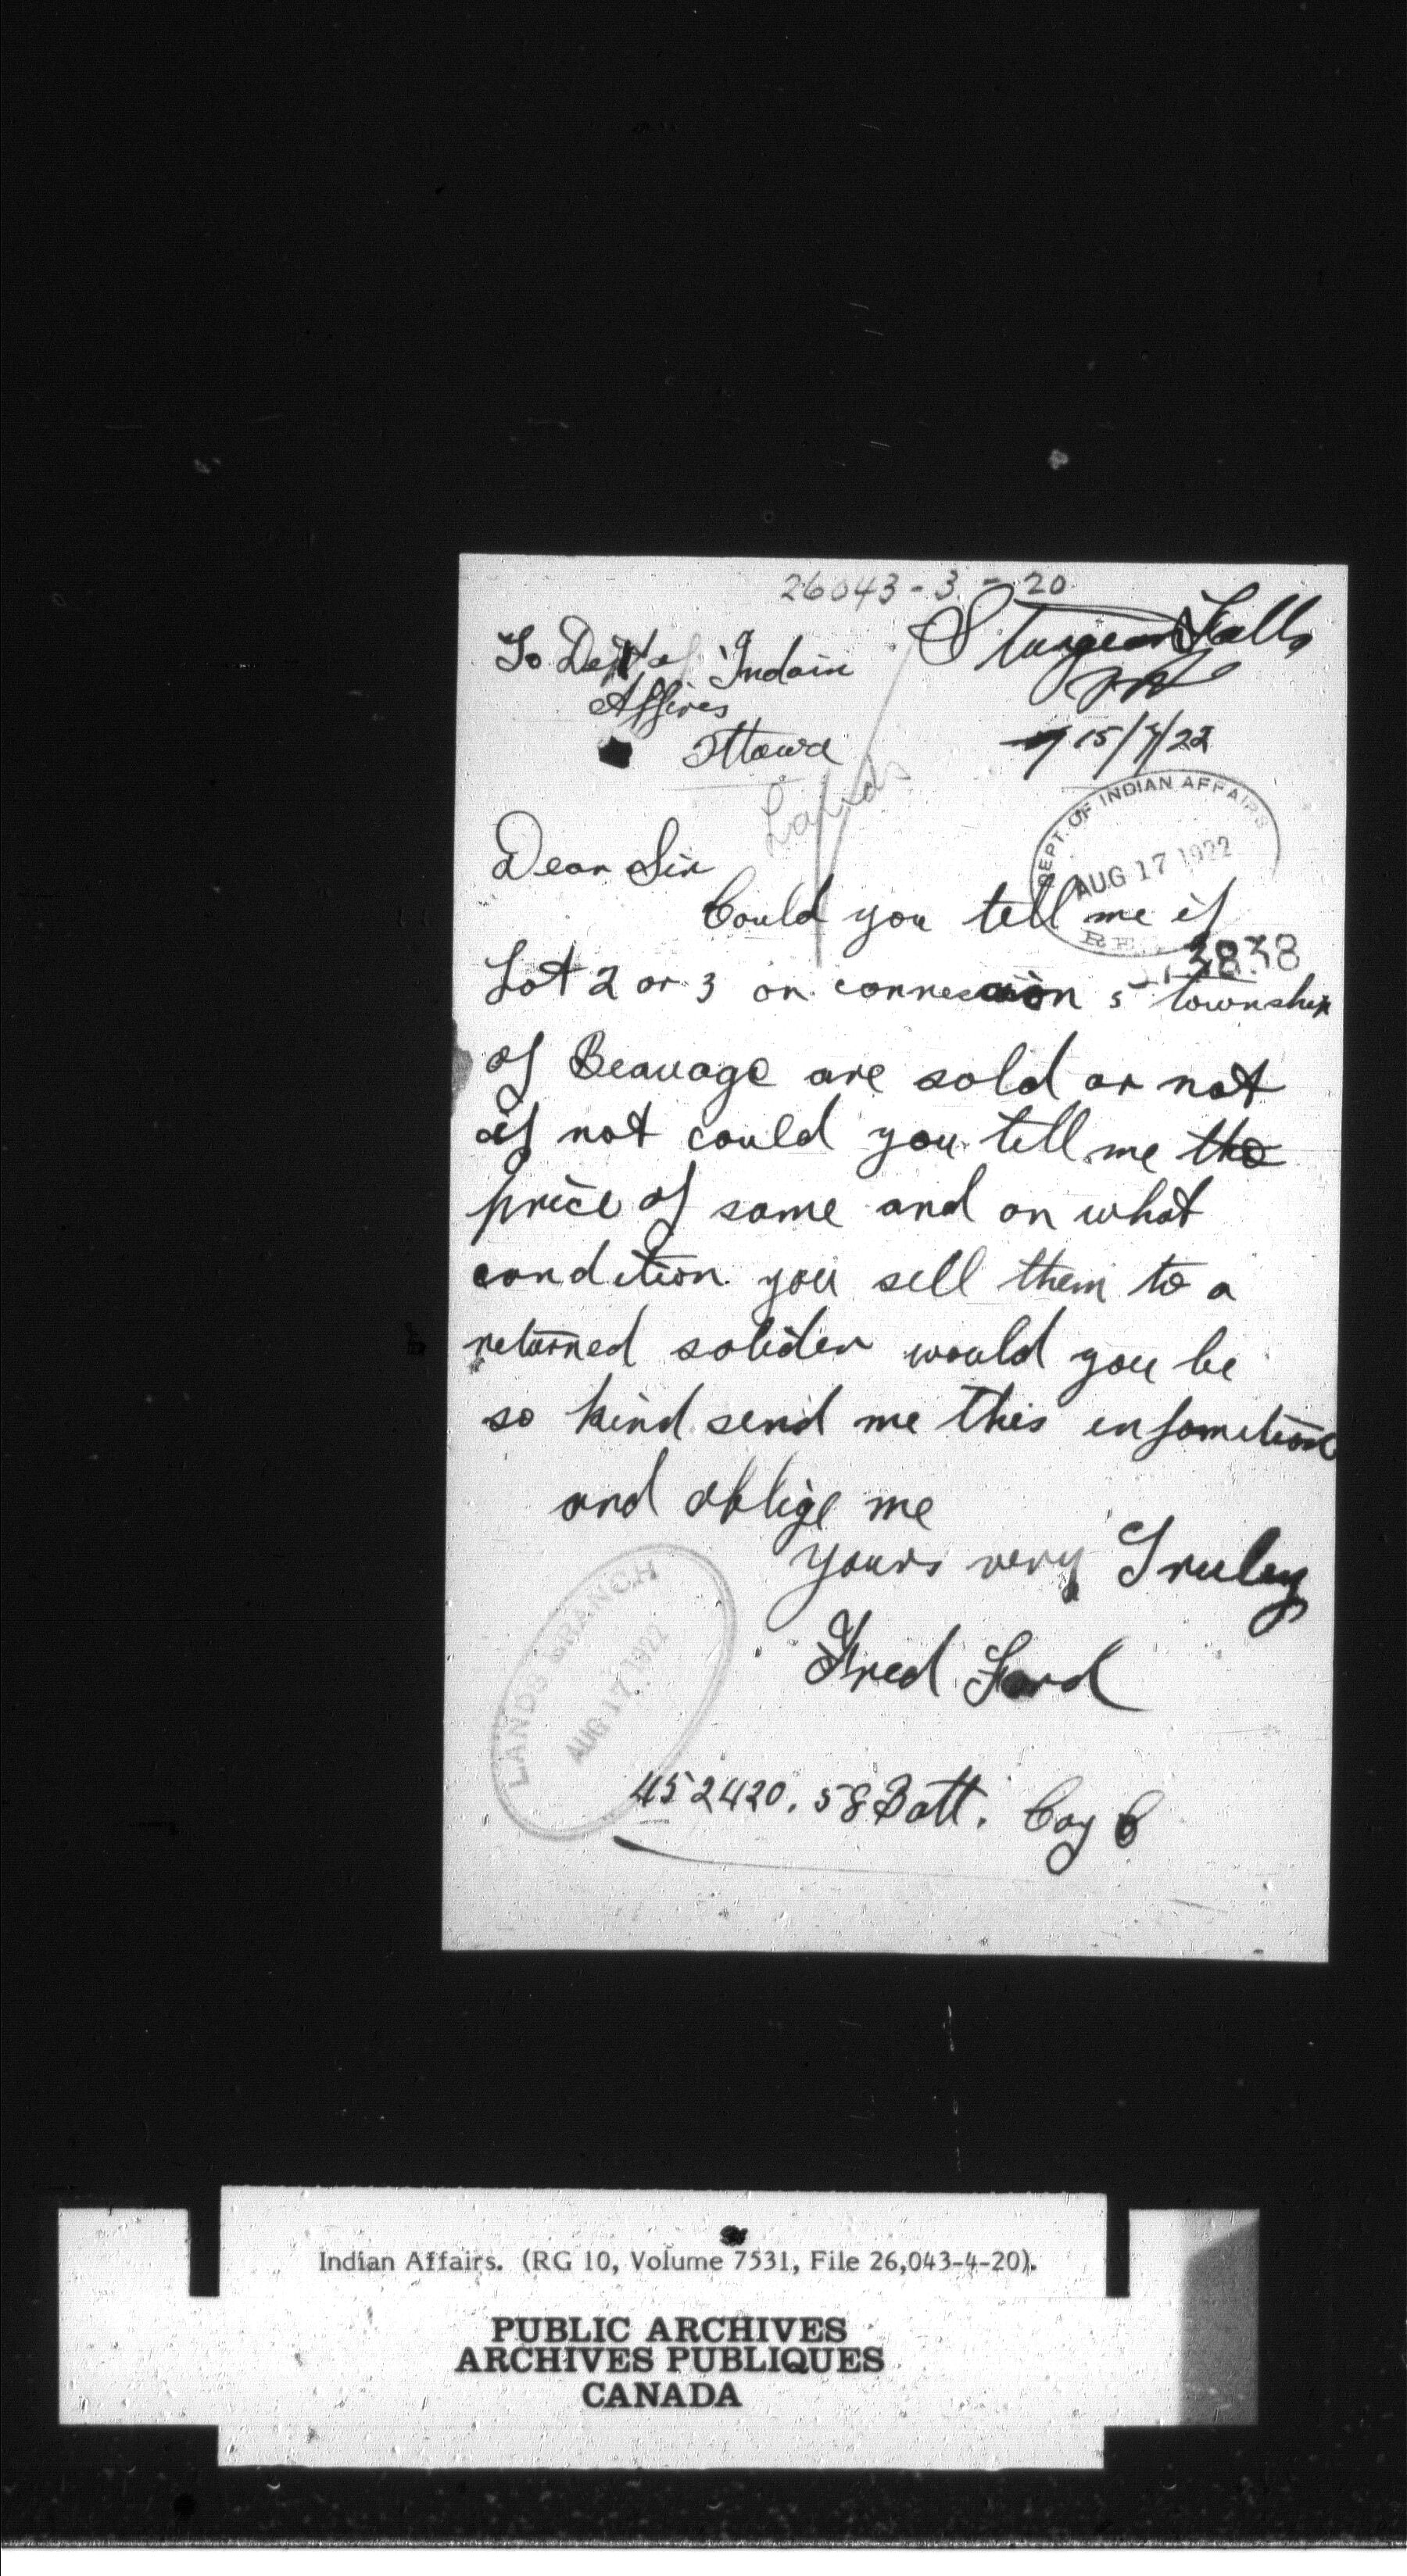 26043-3-20
Sturgeon Falls
To Dept of Indain
Affires
Ottawa
15/8/22
Lands
DEPT. OF INDIAN AFFAIRS
AUG 17 1922
Dear Sir
Could you tell me if
3838
Lot 2 or 3 on connession 5 township
of Beauage are sold or not
if not could you tell me the
price of same and on what
condition you sell them to a
returned solider would you be
so kind send me this infomition
and oblige me
yours very Truley
Fred Ford
LANDS BRANCH
AUG 17 1922
452420. 58 Batt. Coy C
Indian Affairs. (RG 10, Volume 7531, File 26,043-4-20).
PUBLIC ARCHIVES
ARCHIVES PUBLIQUES
CANADA